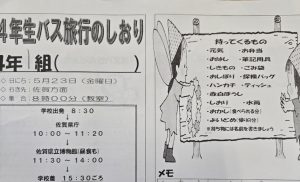 4年生バス旅行のしおり
4年 組(
◎日にち:5月23日(金曜日)
◎行き先:佐賀方面
◎集合:8時00分(教室)
学校出発 8:30
佐賀県庁
10:00～11:20
佐賀県立博物館(昼食も)
11:30～12:50
学校着 15:30ごろ
持ってくるもの
・元気 ・お弁当
・おはし ・筆記用具
・しきもの ・ごみ袋
・おしぼり ・探検バッグ
・ハンカチ ・ティッシュ
・赤白ぼうし
・しおり ・水筒
・おかし(食べられる分)
・よいどめ(必要な)
※持ち物には名前を書きましょう
メモ